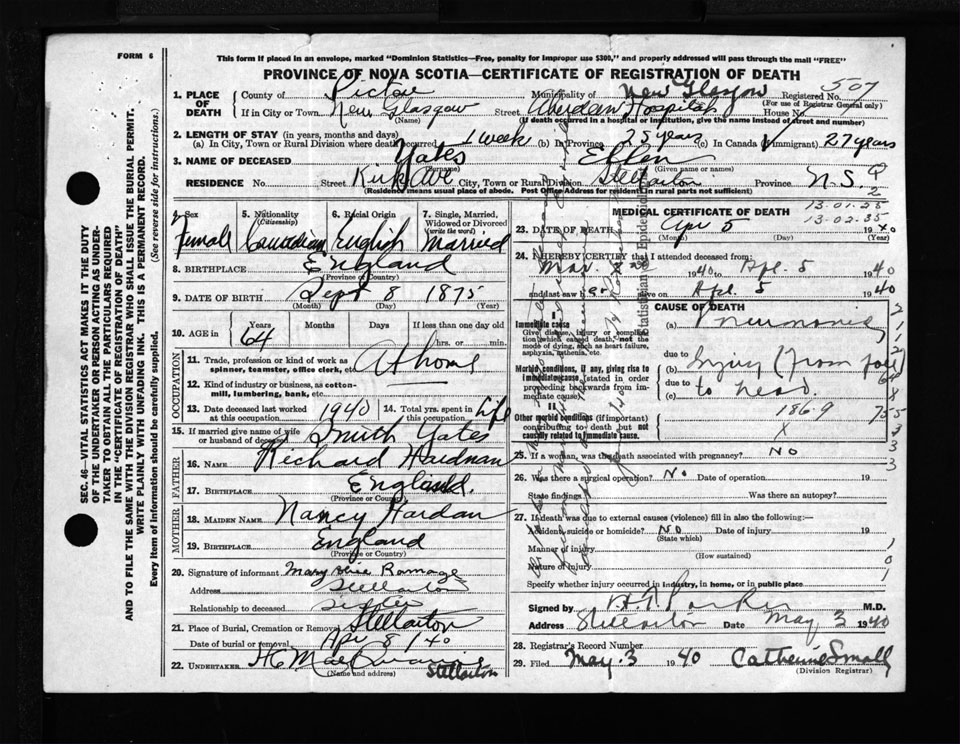 FORM 6
This form if placed in an envelope, marked "Dominion Statistics—Free, penalty for improper use $300," and properly addressed will pass through the mail "FREE"
PROVINCE OF NOVA SCOTIA—CERTIFICATE OF REGISTRATION OF DEATH
1. PLACE OF DEATH County of Pictou Municipality of New Glasgow Registered No. 5507
(For use of Registrar General only)
If in City or Town New Glasgow Street Aberdeen Hospital House No.
(Name) (If death occurred in a hospital or institution, give the name instead of street and number)
2. LENGTH OF STAY (in years, months and days)
(a) In City, Town or Rural Division where death occurred 1 week (b) In Province 25 years (c) In Canada (if immigrant) 27 years
3. NAME OF DECEASED Yates Ellen
(Surname) (Given name or names)
RESIDENCE No. Street Kirk Ave City, Town or Rural Division Stellarton Province N.S.
(Residence means usual place of abode. Post Office Address for residents in rural parts not sufficient)
4. Sex Female
5. Nationality (Citizenship) Canadian
6. Racial Origin English
7. Single, Married, Widowed or Divorced (write the word) Married
8. BIRTHPLACE England
(Province or Country)
9. DATE OF BIRTH Sept 8 1875
(Month) (Day) (Year)
10. AGE in Years 64 Months Days If less than one day old
hrs. or min.
OCCUPATION
11. Trade, profession or kind of work as spinner, teamster, office clerk, etc. At home
12. Kind of industry or business, as cotton-mill, lumbering, bank, etc.
13. Date deceased last worked at this occupation 1940 14. Total yrs. spent in this occupation Life
15. If married give name of wife or husband of deceased Smith Yates
FATHER
16. NAME Richard Hardman
17. BIRTHPLACE England.
(Province or Country)
MOTHER
18. MAIDEN NAME Nancy
19. BIRTHPLACE England
(Province or Country)
20. Signature of informant Mary Ramage
Address Stellarton
Relationship to deceased sister
21. Place of Burial, Cremation or Removal Stellarton
Date of burial or removal Apr 8/40
22. UNDERTAKER Stellarton
(Name and address)
MEDICAL CERTIFICATE OF DEATH
13-01-25
13-02-35
23. DATE OF DEATH Apr 5 1940
(Month) (Day) (Year)
24. I HEREBY CERTIFY that I attended deceased from:
Mar. 1940 to Apl. 5 1940
and last saw er alive on Apl. 5 1940
CAUSE OF DEATH
I
Immediate cause
Give disease, injury or complication which caused death, not the mode of dying, such as heart failure, asphyxia, asthenia, etc.
(a) Pneumonia
due to
Morbid conditions, if any, giving rise to immediate cause (stated in order proceeding backwards from immediate cause).
(b) Injury (from fall)
due to to head.
(c)
II
Other morbid conditions (if important) contributing to death but not causally related to immediate cause.
186.9
X
25. If a woman, was the death associated with pregnancy? NO
26. Was there a surgical operation? NO Date of operation 19
State findings Was there an autopsy?
27. If death was due to external causes (violence) fill in also the following:—
Accident, suicide or homicide? NO Date of injury 19
(State which)
Manner of injury
(How sustained)
Nature of injury
Specify whether injury occurred in industry, in home, or in public place
Signed by M.D.
Address Stellarton Date May 3 1940
28. Registrar's Record Number
29. Filed May. 3 1940 Catherine Small
(Division Registrar)
SEC. 46—VITAL STATISTICS ACT MAKES IT THE DUTY
OF THE UNDERTAKER OR PERSON ACTING AS UNDERTAKER TO OBTAIN ALL THE PARTICULARS REQUIRED
IN THE "CERTIFICATE OF REGISTRATION OF DEATH"
AND TO FILE THE SAME WITH THE DIVISION REGISTRAR WHO SHALL ISSUE THE BURIAL PERMIT.
WRITE PLAINLY WITH UNFADING INK. THIS IS A PERMANENT RECORD.
Every item of information should be carefully supplied. (See reverse side for instructions.)